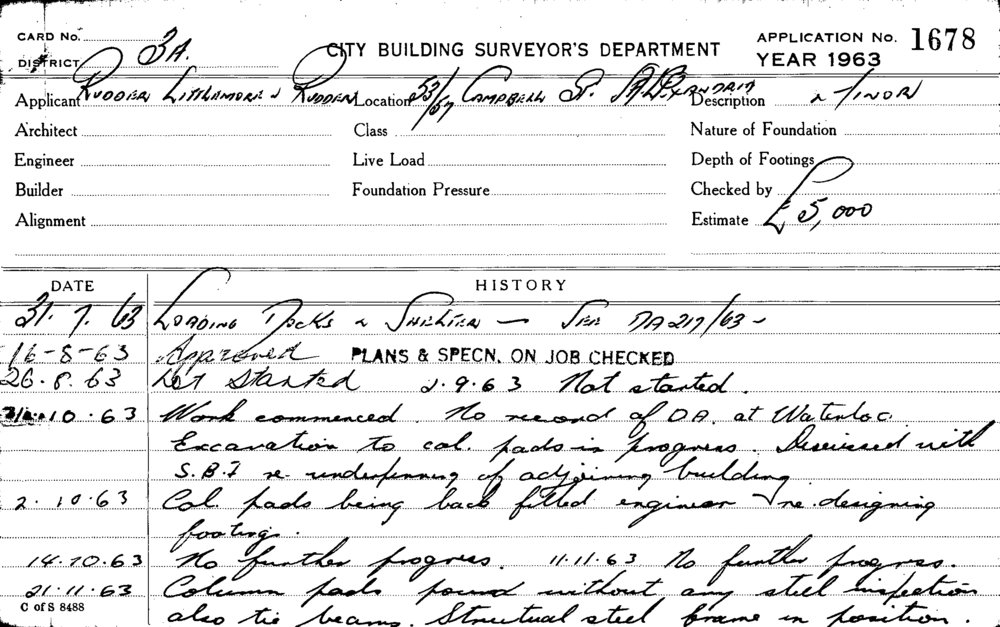 CARD No.
DISTRICT 3A.
CITY BUILDING SURVEYOR'S DEPARTMENT
APPLICATION No. 1678
YEAR 1963
Applicant Rudder Littlemore & Rudder Location 53/57 Campbell St. Alexandria Description Minor
Architect Class Nature of Foundation
Engineer Live Load Depth of Footings
Builder Foundation Pressure Checked by
Alignment Estimate £5,000
DATE HISTORY
31. 7. 63 Loading Docks & Shelter — See DA 217/63 -
16-8-63 Approved PLANS & SPECN. ON JOB CHECKED
26. 8. 63 Not Started 2.9.63 Not started.
10.63 Work commenced. No record of D.A. at Waterloo
Excavation to col. pads in progress. Discussed with
S.B.I re underpinning of adjoining building
2. 10.63 Col. pads being back filled engineer re-designing
footings.
14.10.63 No further progress. 11.11.63 No further progress.
21.11.63 Column pads pourd without any steel inspection
C of S 8488
also tie beams. Structual steel frame in position.